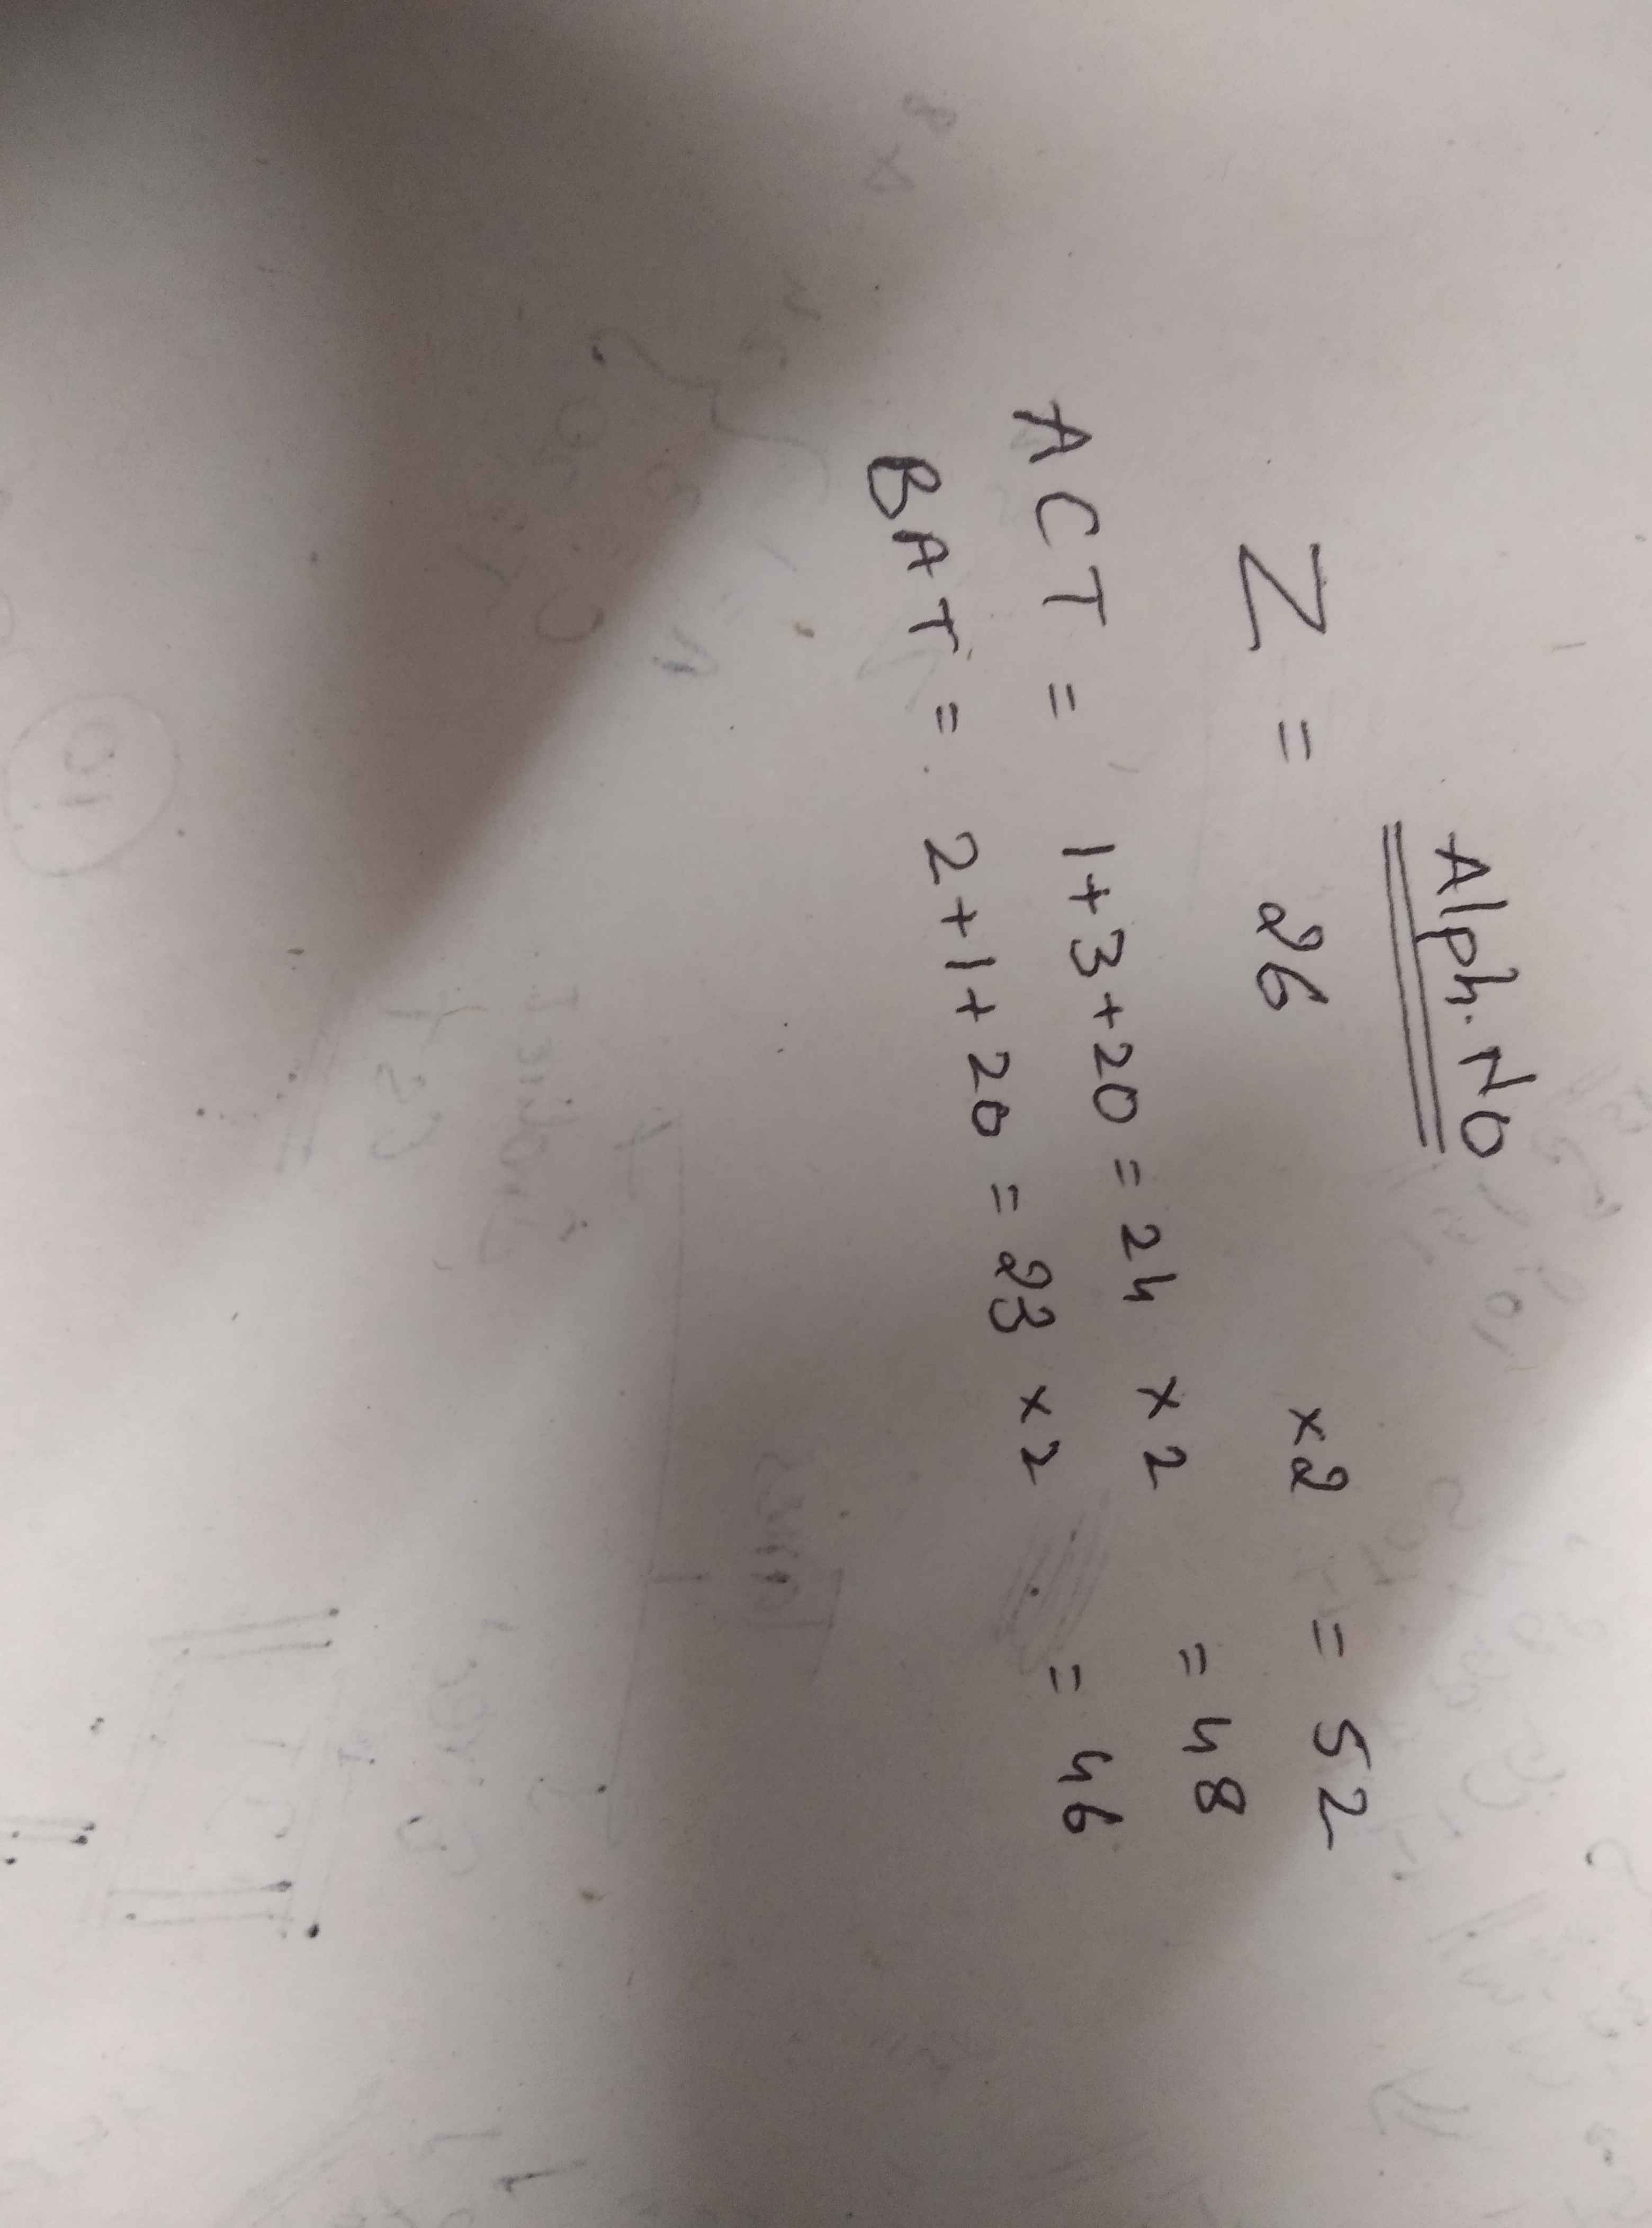 Alph. No
Z = 26 ×2 = 52
ACT = 1+3+20 = 24 × 2 = 48
BAT = 2+1+20 = 23 ×2 = 46